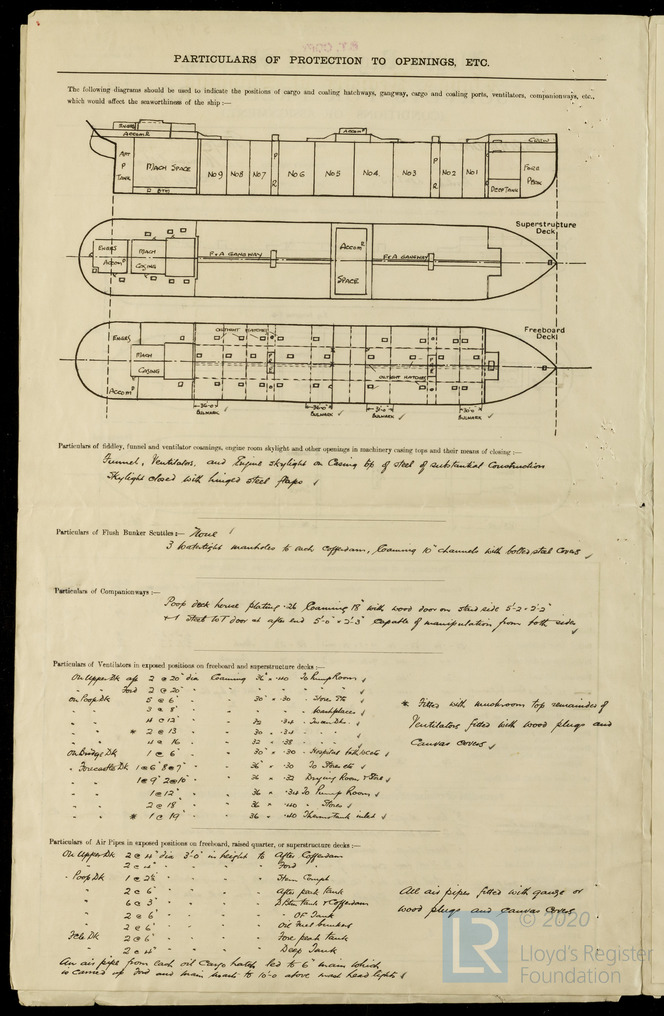 PARTICULARS OF PROTECTION TO OPENINGS, ETC.
The following diagrams should be used to indicate the positions of cargo and coaling hatchways, gangway, cargo and coaling ports, ventilators, companionways, etc.,
which would affect the seaworthiness of the ship:—
ACCOMR ACCOMR
AFT P TANK MACH SPACE No9 No8 No7 P R No6 No5 No4 No3 P R No2 No1 DEEP TANK FORE PEAK
Superstructure Deck
ENGRS ACCOMD MACH CASING F&A GANGWAY ACCOMR SPACE F&A GANGWAY
Freeboard Deck
ENGRS MACH CASING ACCOMD OILTIGHT HATCHES OILTIGHT HATCHES
36-0 BULWARK 36-0 BULWARK 36-0 BULWARK 30-0 BULWARK
Particulars of fiddley, funnel and ventilator coamings, engine room skylight and other openings in machinery casing tops and their means of closing:—
Funnel, Ventilators, and Engine skylight on Casing top of steel of substantial Construction
Skylight closed with hinged steel flaps
Particulars of Flush Bunker Scuttles:— None
3 Watertight manholes to each cofferdam, Coaming 10" channels with bolted steel covers
Particulars of Companionways:—
Poop deck house plating .26 Coaming 18" with wood door on side 5-2 × 2-2
+ 1 Steel WT door at after end 5'-0" × 2'-3" capable of manipulation from both sides
Particulars of Ventilators in exposed positions on freeboard and superstructure decks:—
On Upper Dk aft 2 @ 20" dia Coaming 36" × .40 To Pump Room
" " Ford 2 @ 20" " " " " "
on Poop Dk 5 @ 6" " " 30" × .30 Store Etc
" 3 @ 8" " " " " "
" 4 @ 12" " " .34
" * 2 @ 13 " " 30 × .34
" 4 @ 16 " " 32 × .38
On Bridge Dk 1 @ 6" " " 30" × .30 Hospital
" Forecastle Dk 1@6" 8@7" " " 36" × .30 To Stores etc
" 1@9" 2@10" " " 36 × .32 Drying Room
" 1@12" " " 36 × .34 To Pump Room
" 2@18" " " 36 × .40 Stores
" * 1@19" " " 36 × .40 Thermotank inlet
* Fitted with mushroom top remainder of
Ventilators fitted with wood plugs and
Canvas covers
Particulars of Air Pipes in exposed positions on freeboard, raised quarter, or superstructure decks:—
On Upper Dk 2 @ 4" dia 3'-0" in height to After Cofferdam
" 2 @ 4" " " " Ford "
" Poop Dk 1 @ 2½ " " "
" 2 @ 6" " " " After peak tank
" 6 @ 3" " " " D Btm tank & Cofferdam
" 2 @ 6" " " " OF Tank
" 2 @ 6" " " " Oil Fuel bunkers
Fcle Dk 2 @ 6" " " " Fore peak tank
" 2 @ 4" " " " Deep Tank
All air pipes fitted with gauze or
wood plugs and canvas covers
An air pipe from each oil Cargo hatch led to 6" main which
is carried up Ford and main masts to 10'-0 above mast head lights
© 2020
LR Lloyd's Register
Foundation